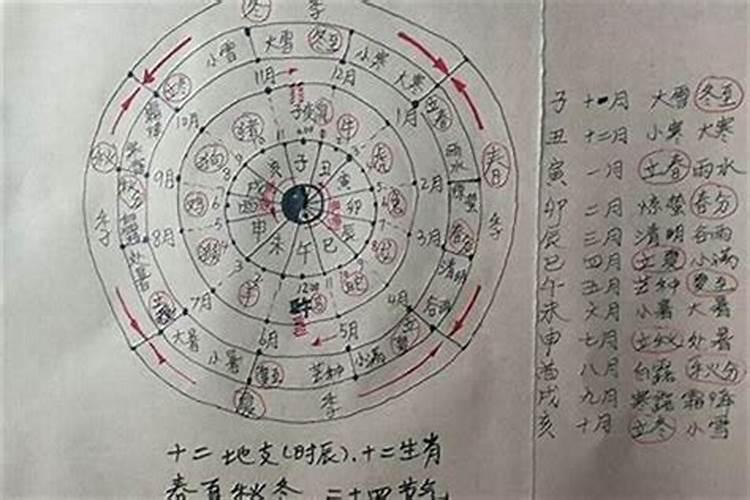 冬 季
小雪 大雪 冬至 小寒 大寒
立冬 11月 12月 立春
10月 1月
子 丑 寅 卯 辰 巳 午 未 申 酉 戌 亥
鼠 牛 虎 兔 龙 蛇 马 羊 猴 鸡 狗 猪
秋 季
春 季
雨水 惊蛰 春分 清明 谷雨
9月 2月
8月 3月
7月 4月
6月 5月
12:00
处暑 立秋
大暑 小暑 夏至 芒种 小满 立夏
夏 季
子 十一月 大雪 冬至
丑 十二月 小寒 大寒
寅 一月 立春 雨水
卯 二月 惊蛰 春分
辰 三月 清明 谷雨
巳 四月 立夏 小满
午 五月 芒种 夏至
未 六月 小暑 大暑
申 七月 立秋 处暑
酉 八月 白露 秋分
戌 九月 寒露 霜降
亥 十月 立冬 小雪
十二地支(时辰)、十二生肖
春夏秋冬 二十四节气